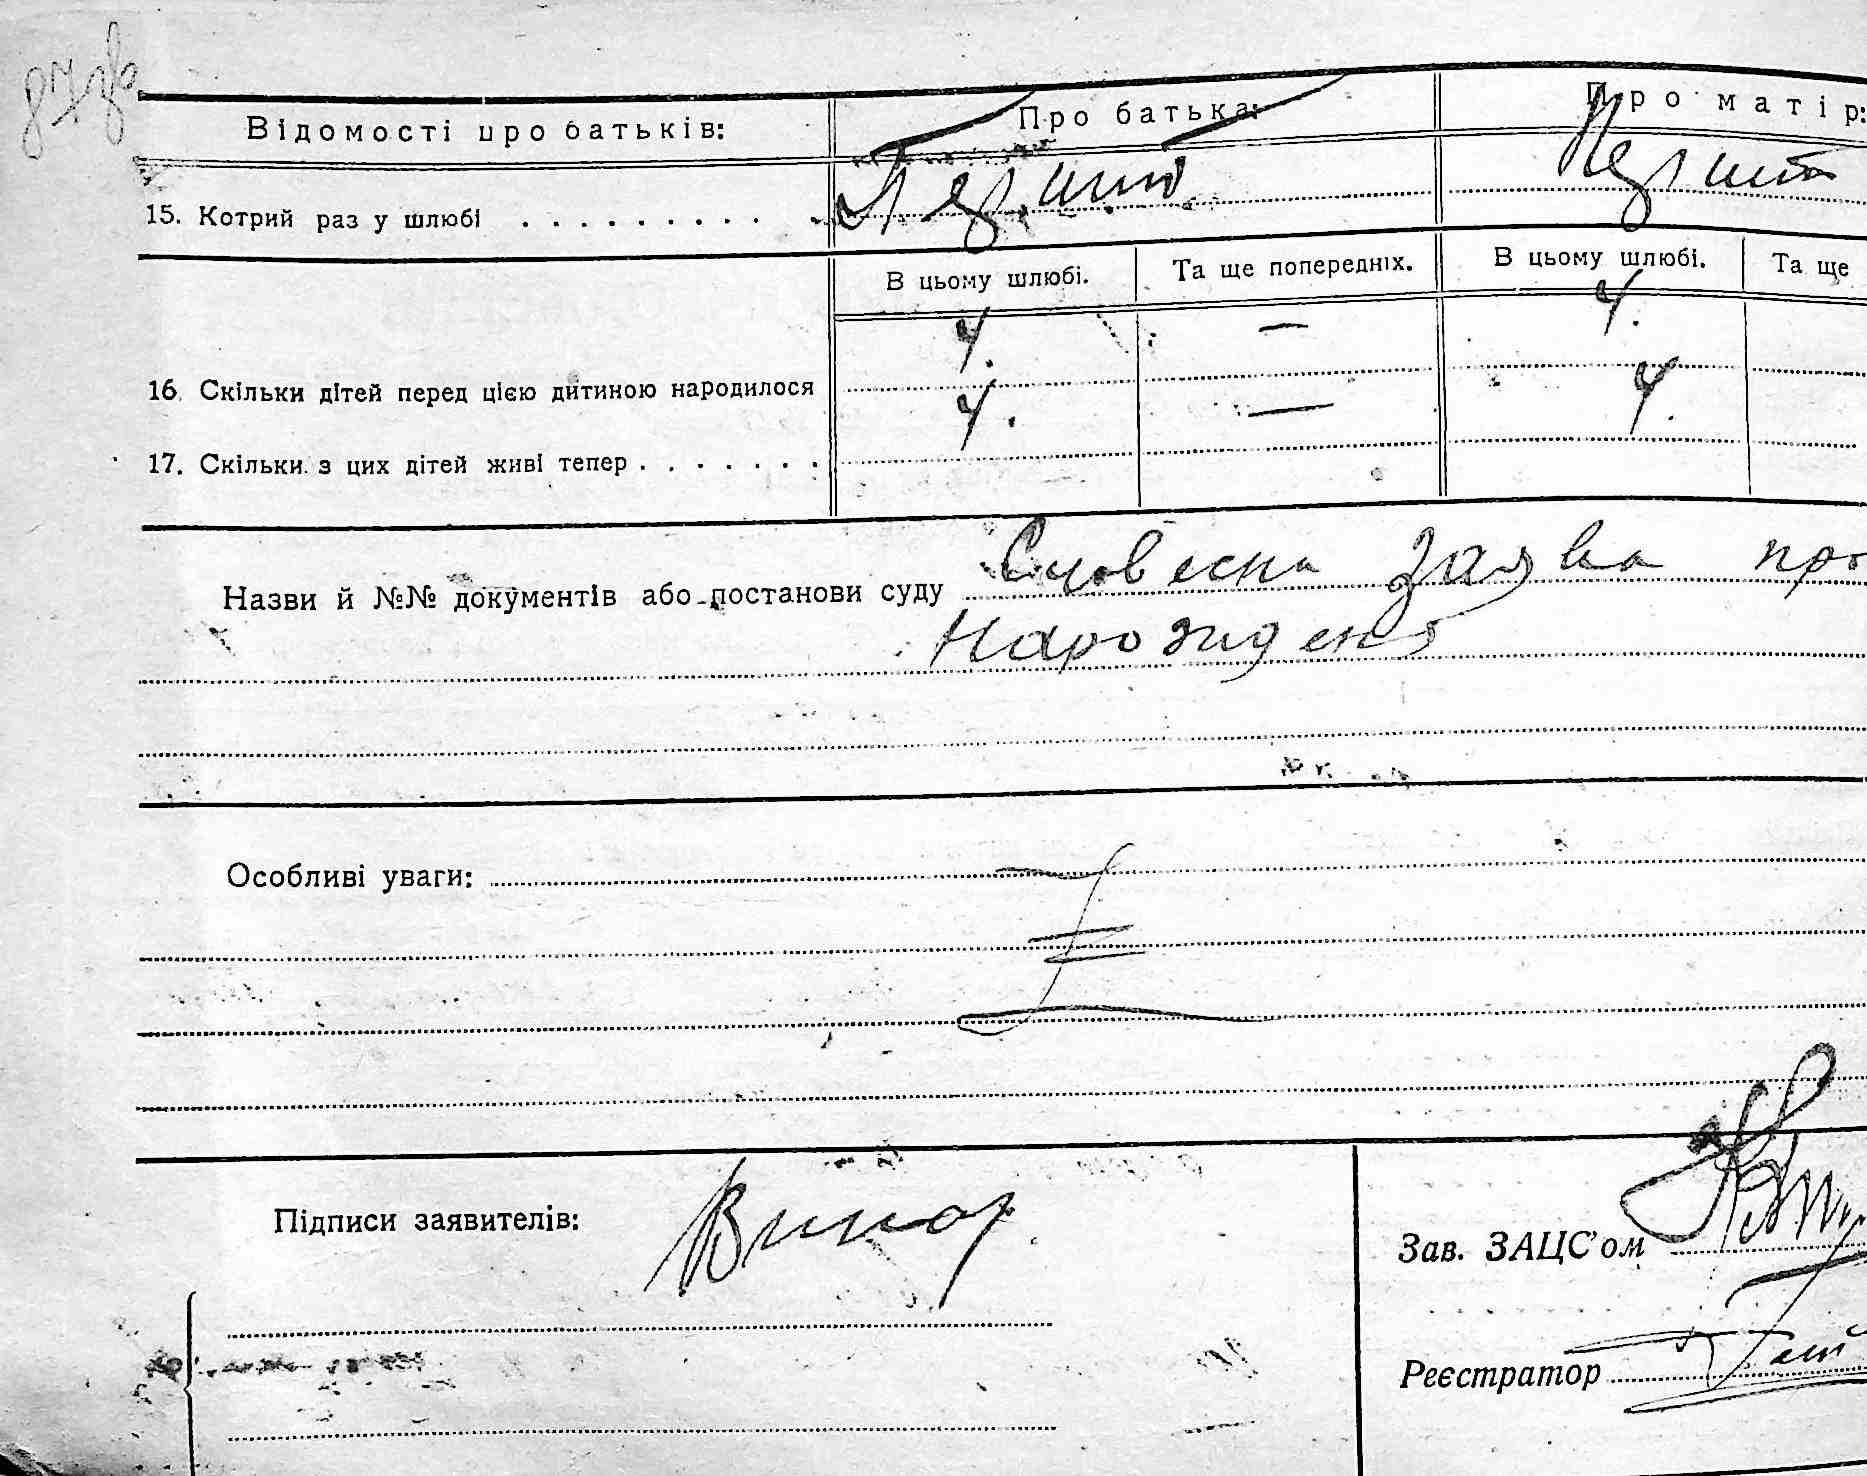 87 зв
Відомості про батьків: Про батька: Про матір:
15. Котрий раз у шлюбі . . . . . . . . . . Перший Перший
В цьому шлюбі. Та ще попередніх. В цьому шлюбі. Та ще
4. — 4.
16. Скільки дітей перед цією дитиною народилося
4. — 4.
17. Скільки з цих дітей живі тепер . . . . . . .
Назви й №№ документів або постанови суду Словесна заява про
Народження
Особливі уваги:
Підписи заявителів:
Зав. ЗАЦС’ом
Реєстратор